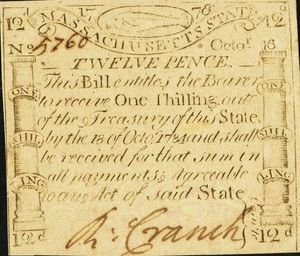 12d 17 76 12d
MASSACHUSETTS STATE
No 5760 Octor. 16
TWELVE PENCE.
This Bill entitles the Bearer
to receive One Shilling out
of the Treasury of this State
by the 18 of Octor. 1784 and shall
be received for that sum in
all payments Agreeable
to an Act of said State
ONE
SHIL
LING
ONE
SHIL
LING
R. Cranch
12d 12d